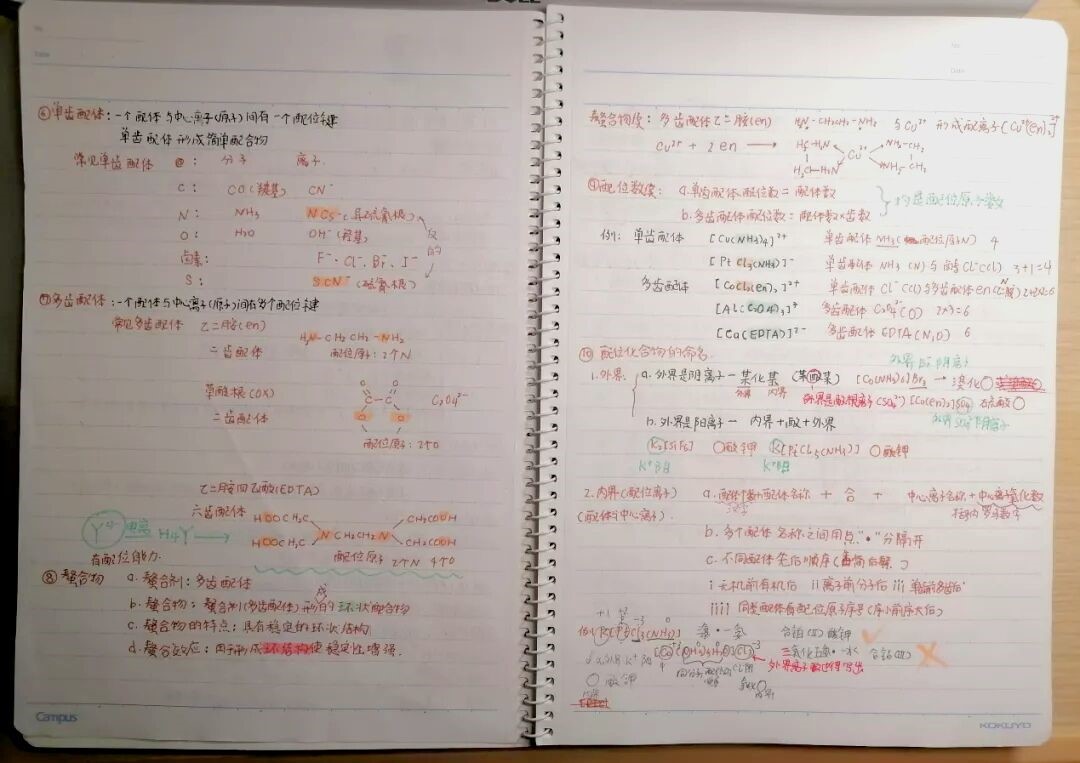 ⑥单齿配体：一个配体与中心离子(原子)间有一个配位键
单齿配体形成简单配合物
常见单齿配体 分子 离子
C： CO(羰基) CN⁻
N： NH₃ NCS⁻(异硫氰根)
O： H₂O OH⁻(羟基)
卤素： F⁻、Cl⁻、Br⁻、I⁻
S： SCN⁻(硫氰根)
⑦多齿配体：一个配体与中心离子(原子)间有多个配位键
常见多齿配体 乙二胺(en) H₂N-CH₂CH₂-NH₂
二齿配体 配位原子：2个N
草酸根(OX) O O
C-C C₂O₄²⁻
二齿配体 O O
配位原子：2个O
乙二胺四乙酸(EDTA)
六齿配体 HOOCH₂C CH₂COOH
Y⁴⁻ 电离 H₄Y NCH₂CH₂N
HOOCH₂C CH₂COOH
有配位能力. 配位原子 2个N 4个O
⑧螯合物 a. 螯合剂：多齿配体
b. 螯合物：螯合剂(多齿配体)形成的环状配合物
c. 螯合物的特点：具有稳定的环状结构
d. 螯合效应：由于形成环结构使稳定性增强.
Campus
多齿配体乙二胺(en) H₂N-CH₂CH₂-NH₂ 与Cu²⁺形成配离子[Cu(en)₂]²⁺
Cu²⁺ + 2en → H₂C-H₂N NH₂-CH₂
Cu²⁺
H₂C-H₂N NH₂-CH₂
⑨配位数： a.单齿配体配位数=配体数
b.多齿配体配位数=配体数×齿数
均是配位原子数
例：单齿配体 [Cu(NH₃)₄]²⁺ 单齿配体NH₃(配位原子N) 4
[PtCl₃(NH₃)]⁻ 单齿配体NH₃(N)与Cl⁻(Cl) 3+1=4
多齿配体 [CoCl₂(en)₂]⁺ 单齿配体Cl⁻(Cl)与多齿配体en(N) 2+2×2=6
[Al(C₂O₄)₃]³⁻ 多齿配体C₂O₄²⁻(O) 2×3=6
[Ca(EDTA)]²⁻ 多齿配体EDTA(N,O) 6
⑩配位化合物的命名.
外界Br⁻阴离子
1.外界： a.外界是阴离子—某化某(某酸某) [Co(NH₃)₆]Br₃ → 溴化○
外界 内界 外界是酸根离子(SO₄²⁻) [Co(en)₃]SO₄ 硫酸○
外界SO₄²⁻阴离子
b.外界是阳离子— 内界+酸+外界
K₂[SiF₆] ○酸钾 K[PtCl₅(NH₃)] ○酸钾
K⁺阳 K⁺阳
2.内界(配位离子) a.配体个数+配体名称 + 合 + 中心离子名称+中心离子氧化数
(配体与中心离子). 括号内罗马数字
b. 多个配体名称之间用点"•"分隔开
c. 不同配体先后顺序
i 无机前有机后 ii 离子前分子后 iii 单齿前多齿后
iiii 同类配体看配位原子序号(序小前序大后)
三氯•一氨 合铂(II)酸钾
三氯化五氨•一水 合钴(III)
外界离子数也得写出
○酸钾
KOKUYO